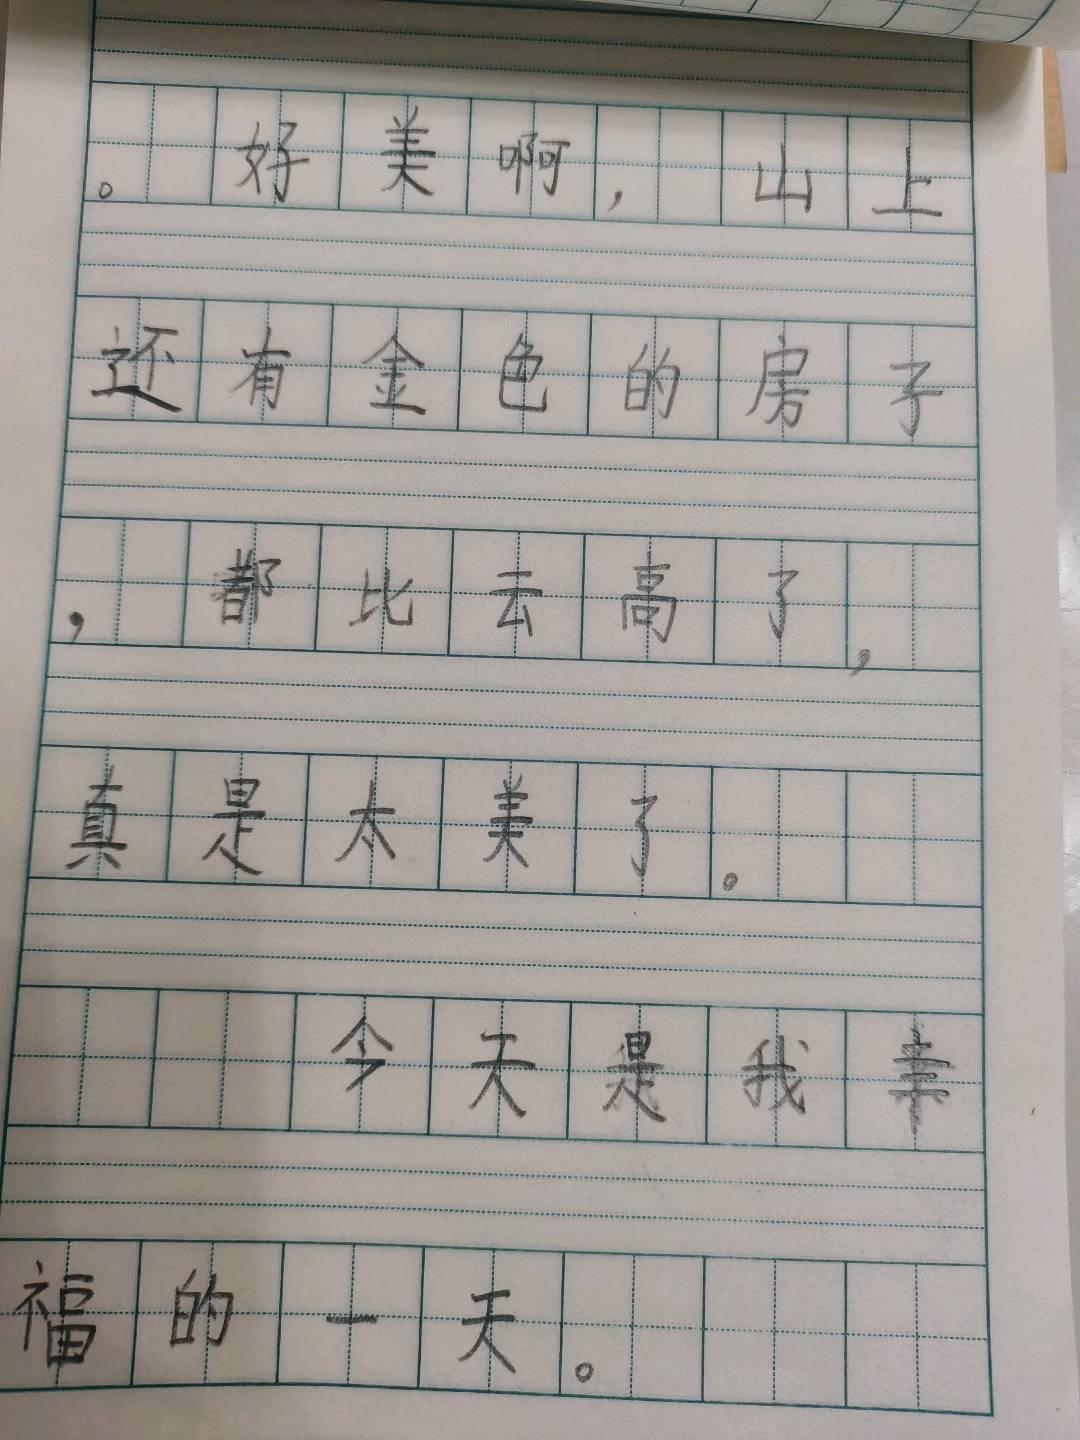 。好美啊，山上
还有金色的房子
，都比云高了，
真是太美了。
今天是我幸
福的一天。